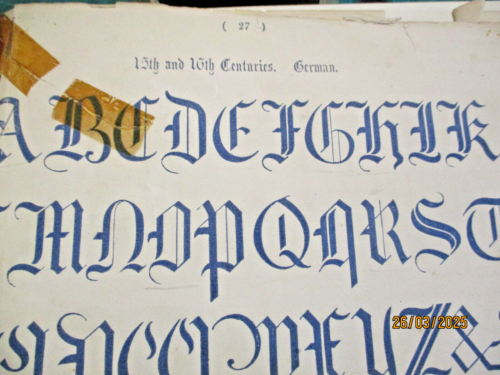 ( 27 )
15th and 16th Centuries. German.
A B C D E F G H I K
M N O P Q Q R S T
W X Y Z &
26/03/2025